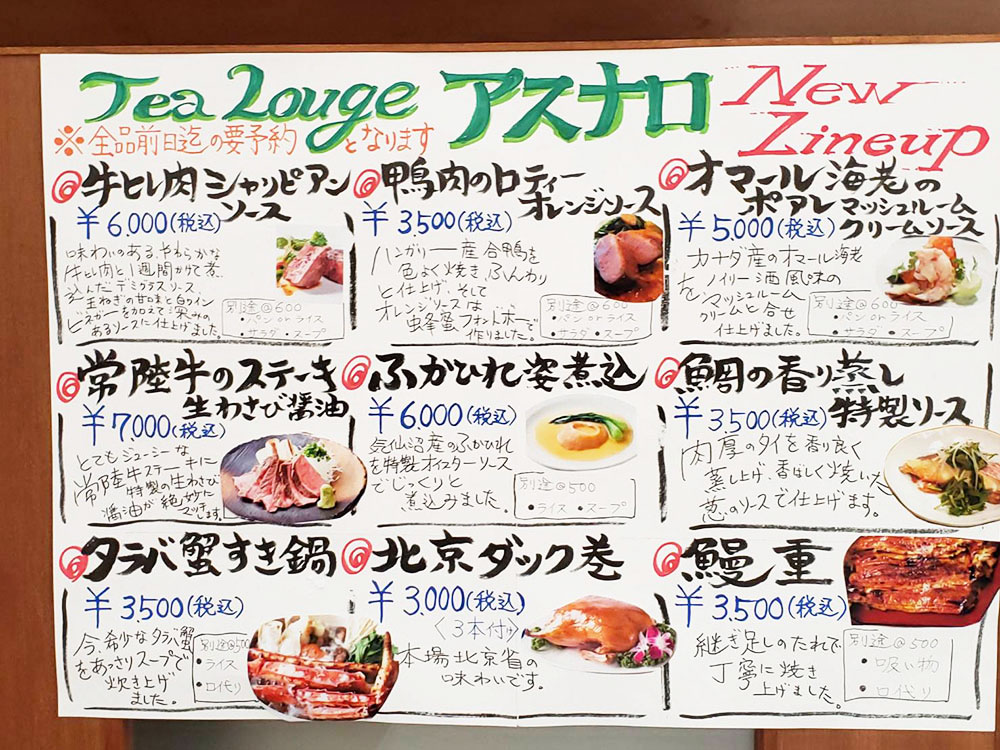 Tea Louge アスナロ
New
Lineup
※全品前日迄の要予約となります
牛ヒレ肉 シャリピアン
ソース
￥6,000(税込)
味わいのある、やわらかな
牛ヒレ肉と1週間かけて煮
込んだデミグラスソース、
玉ねぎの甘味と白ワイン
ビネガーを加えて深みの
あるソースに仕上げました。
別途@600
・パンorライス
・サラダ・スープ
鴨肉のロティー
オレンジソース
￥3,500(税込)
ハンガリー産合鴨を
色よく焼き、ふんわり
と仕上げ、そして
オレンジソースは
蜂蜜フォンドボーで
作りました。
別途@600
・パンorライス
・サラダ・スープ
オマール海老の
ポアレ マッシュルーム
クリームソース
￥5,000(税込)
カナダ産のオマール海老
をノイリー酒風味の
マッシュルーム
クリームと合せ
仕上げました。
別途@600
・パンorライス
・サラダ・スープ
常陸牛のステーキ
生わさび醤油
￥7,000(税込)
とてもジューシーな
常陸牛ステーキに
特製の生わさび
醤油が絶妙に
マッチします。
ふかひれ姿煮込
￥6,000(税込)
気仙沼産のふかひれ
を特製オイスターソース
でじっくりと
煮込みました。
別途@500
・ライス ・スープ
鯛の香り蒸し
特製ソース
￥3,500(税込)
肉厚のタイを香り良く
蒸し上げ、香ばしく焼いた
葱のソースで仕上げます。
タラバ蟹すき鍋
￥3,500(税込)
今、希少なタラバ蟹
をあっさりスープで
炊き上げ
ました。
別途@500
・ライス
・口代り
北京ダック巻
￥3,000(税込)
〈3本付〉
本場北京省の
味わいです。
鰻重
￥3,500(税込)
継ぎ足しのたれで、
丁寧に焼き
上げました。
別途@500
・吸い物
・口代り